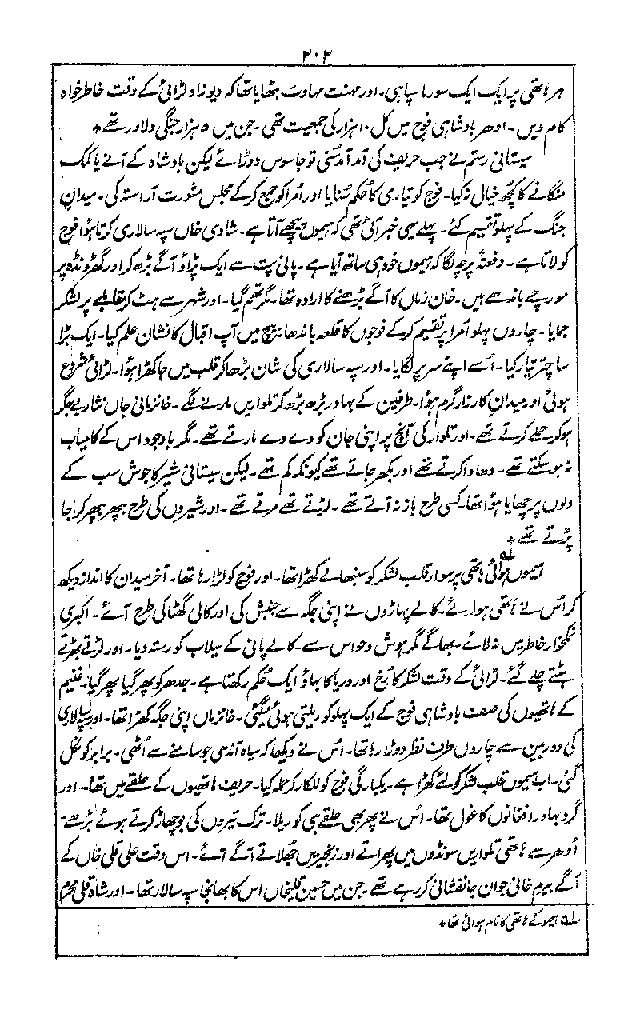 ۲۰۲
ہر ہاتھی پر ایک ایک سورما سپاہی ۔ اور مہنت مہاوت بٹھایا تھا کہ دیوزاد لڑائی کے وقت خاطر خواہ
کام دیں ۔ ادھر بادشاہی فوج میں کل ۱۰ ہزار کی جمعیت تھی ۔ جن میں ۵ ہزار جنگی دلاور تھے ٭
سیستانی رستم نے جب حریف کی آمد آمد سُنی تو جاسوس دوڑائے لیکن بادشاہ کے آنے یا کمک
منگانے کا کچھ خیال نہ کیا ۔ فوج کو تیاری کا حکم سُنایا اور اُمرا کو جمع کر کے مجلس مشورت آراستہ کی ۔ میدان
جنگ کے پہلو تقسیم کئے ۔ پہلے یہی خبر آئی تھی کہ ہیموں پیچھے آتا ہے ۔ شادی خاں سپہ سالاری کرتا ہوا فوج
کو لاتا ہے ۔ دفعتہً پرچہ لگا کہ ہیموں خود ہی ساتھ آیا ہے ۔ پانی پت سے ایک پڑاؤ آگے بڑھ کر اور گھرونڈہ پر
مورچے باندھے ہیں ۔ خان زماں کا آگے بڑھنے کا ارادہ تھا ۔ مگر تھم گیا ۔ اور شہر سے ہٹ کر مقابلے پر لشکر
جمایا ۔ چاروں پہلو اُمرا پر تقسیم کر کے فوجوں کا قلعہ باندھا ۔ بیچ میں آپ اقبال کا نشان علم کیا ۔ ایک بڑا
سا چتر تیار کیا ۔ اُسے اپنے سر پر لگایا ۔ اور سپہ سالاری کی شان بڑھا کر قلب میں جا کھڑا ہوا ۔ لڑائی شروع
ہوئی اور میدان کارزار گرم ہوا ۔ طرفین کے بہادر بڑھ بڑھ کر تلواریں مارنے لگے ۔ خانزمانی جاں نثار بے جگر
ہو کر حملے کرتے تھے ۔ اور تلوار کی آنچ پر اپنی جان کو دے دے مارتے تھے ۔ مگر باوجود اس کے کامیاب
نہ ہو سکتے تھے ۔ دھاوا کرتے تھے اور بکھر جاتے تھے کیونکہ کم تھے ۔ لیکن سیستانی شیر کا جوش سب کے
دلوں پر چھایا ہوا تھا کسی طرح باز نہ آتے تھے ۔ لڑتے تھے مرتے تھے ۔ اور شیروں کی طرح بپھر بپھر کر جا
پڑتے تھے ٭
ہیموں ہوائی ہاتھی پر سوار قلب لشکر کو سنبھالے کھڑا تھا ۔ اور فوج کو لڑا رہا تھا ۔ آخر میدان کا انداز دیکھ
کر اُس نے ہاتھی ہولے ۔ کالے پہاڑوں نے اپنی جگہ سے جنبش کی اور کالی گھٹا کی طرح آئے ۔ اکبری
نمکخوار خاطر میں نہ لائے ۔ بھاگے مگر ہوش و حواس سے ۔ کالے پانی کے سیلاب کو رستہ دیا ۔ اور لڑتے بھڑتے
ہٹتے چلے گئے ۔ لڑائی کے وقت لشکر کا رُخ اور دریا کا بہاؤ ایک حکم رکھتا ہے ۔ جدھر کو پھر گیا پھر گیا ۔ غنیم
کے ہاتھیوں کی صف بادشاہی فوج کے ایک پہلو کو ریلتی ہوئی لے گئی ۔ خانزماں اپنی جگہ کھڑا تھا ۔ اور سپہ سالاری
کی دوربین سے چاروں طرف نظر دوڑا رہا تھا ۔ اُس نے دیکھا کہ سیاہ آندھی جو سامنے سے اُٹھی ۔ برابر کو نکل
گئی ۔ اب ہیموں قلب لشکر کو لئے کھڑا ہے ۔ یکبارگی فوج کو للکار کر حملہ کیا ۔ حریف ہاتھیوں کے حلقے میں تھا ۔ اور
گرد بہادر افغانوں کا غول تھا ۔ اُس نے پھر بھی حلقے ہی کو ریلا ۔ ترک تیروں کی بوچھاڑ کرتے ہوئے بڑھتے ۔
اُدھر سے ہاتھی تلواریں سونڈوں میں پھراتے اور زنجیریں جھلاتے آگے آئے ۔ اس وقت علی قلی خاں کے
آگے بیرم خانی جوان جانفشانی کر رہے تھے ۔ جن میں حسین قلیخاں اس کا بھانجہ سپہ سالار تھا ۔ اور شاہ قلی محرم
سلہ ہیمو کے ہاتھی کا نام ہوائی تھا ٭